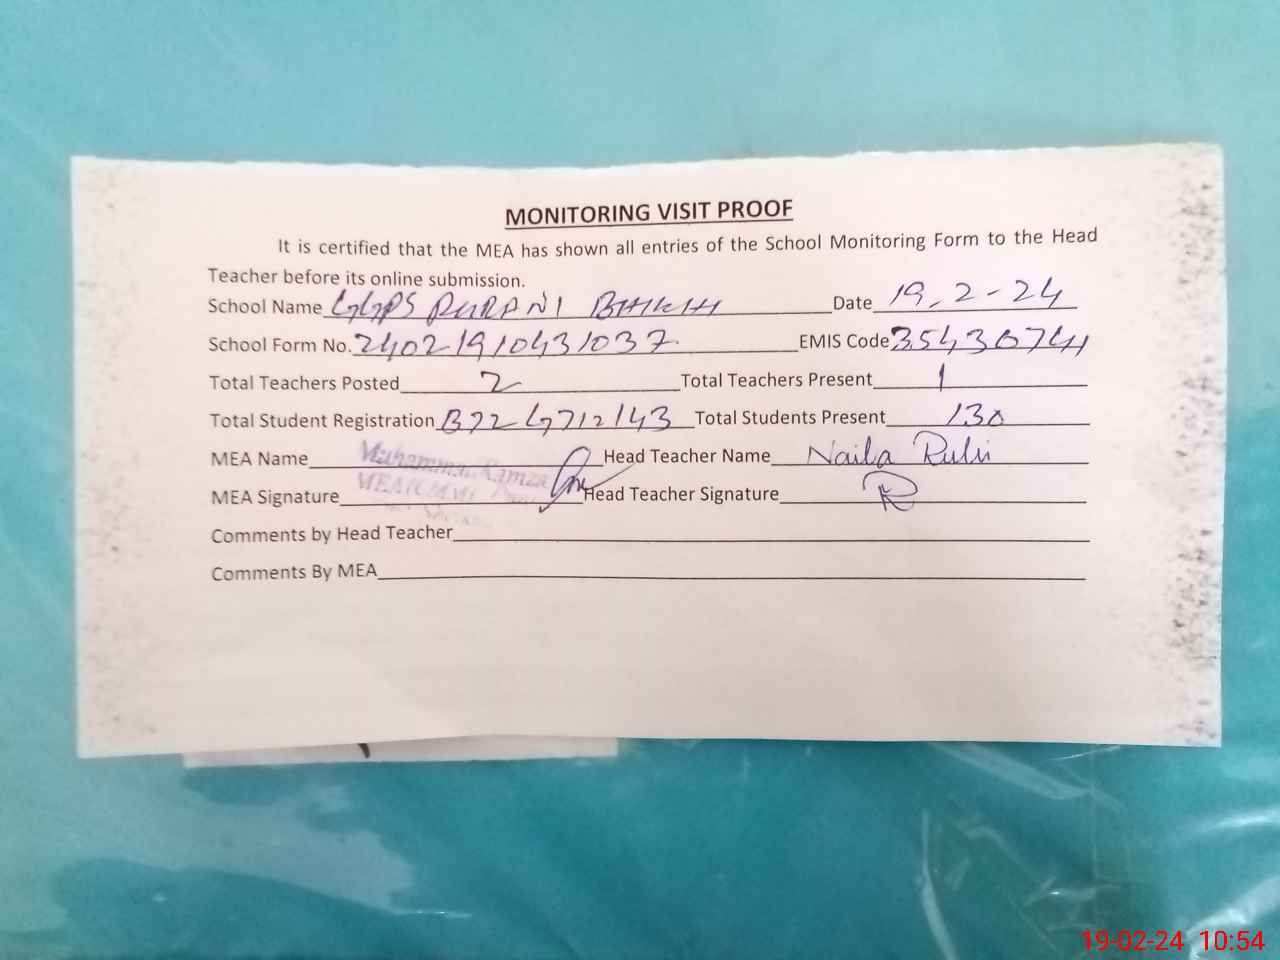 MONITORING VISIT PROOF
It is certified that the MEA has shown all entries of the School Monitoring Form to the Head
Teacher before its online submission.
School Name GGPS PURANI BHIKHI Date 19-2-24
School Form No. 24021910431037 EMIS Code 35430741
Total Teachers Posted 2 Total Teachers Present 1
Total Student Registration B72 G71 2143 Total Students Present 130
MEA Name Muhammad Ramza Head Teacher Name Naila Rubi
MEA Signature MEA (CMM) Head Teacher Signature
Comments by Head Teacher
Comments By MEA
19-02-24 10:54